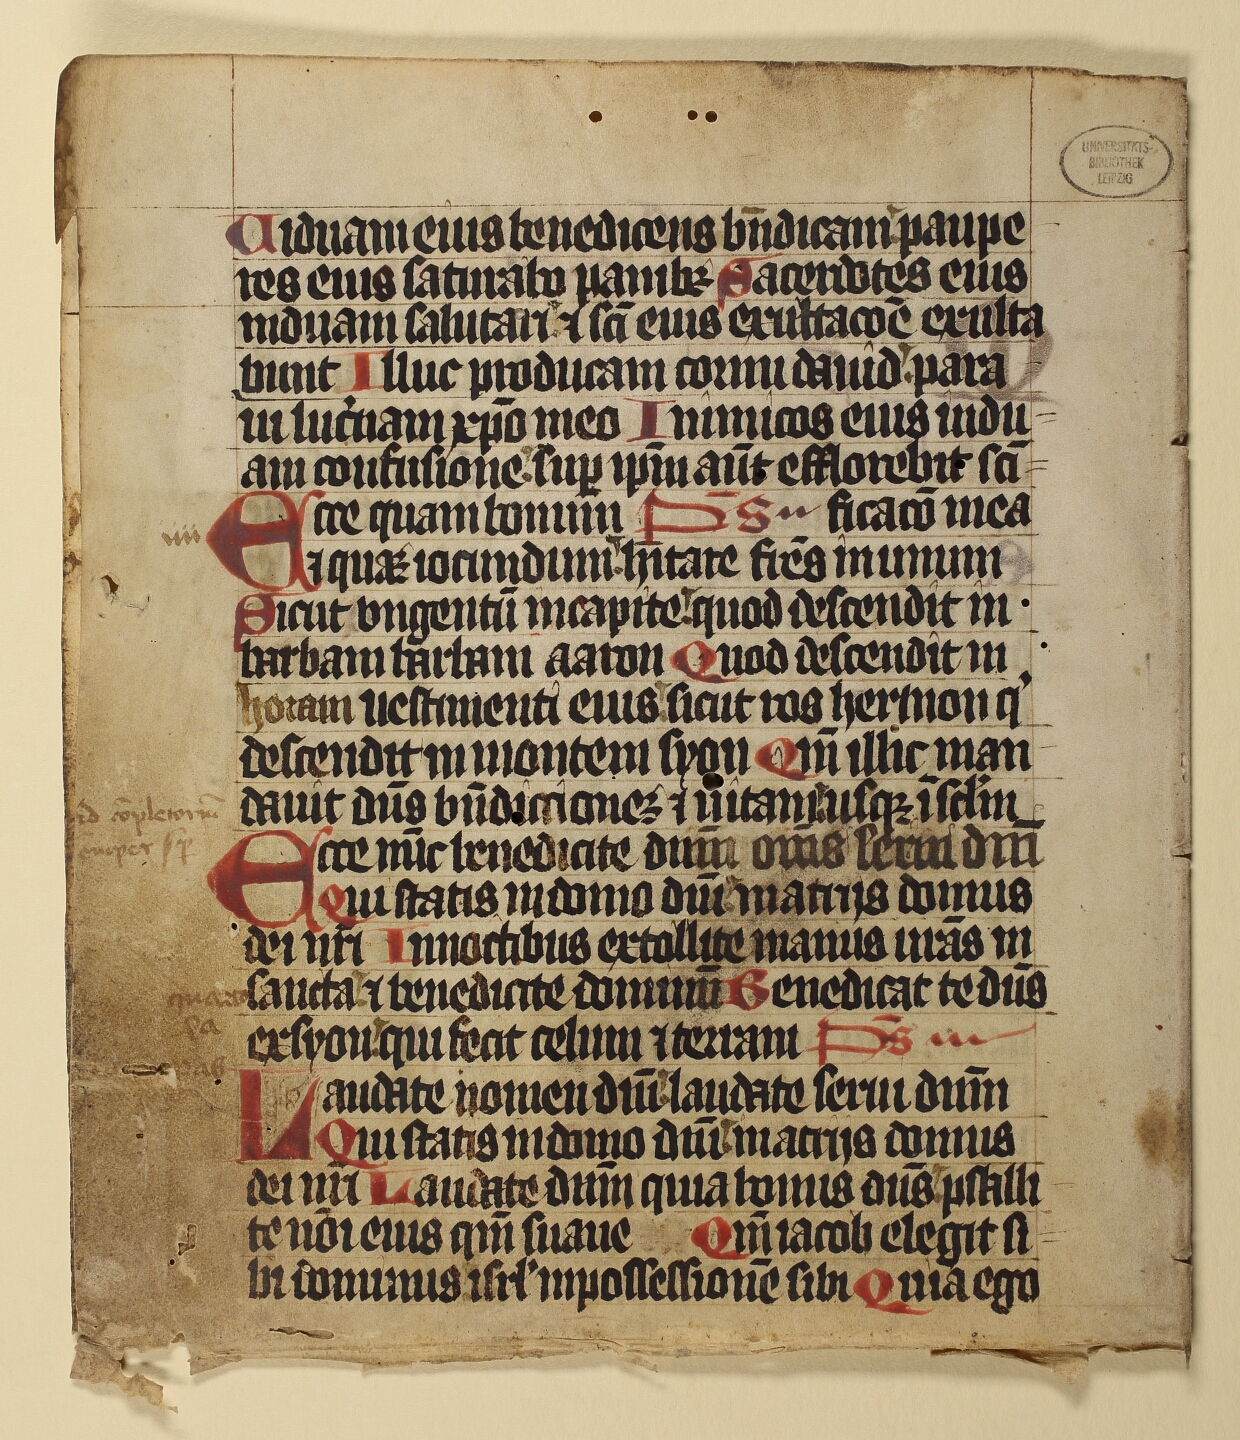 UNIVERSITÄTS-
BIBLIOTHEK
LEIPZIG
Uiduam eius benedicens bn̄dicam paupe
res eius saturabo panibꝫ Sacerdotes eius
induam salutari ⁊ sc̄i eius exultacōe exulta
bunt Illuc producam cornu dauid para
ui luc̄nam xp̄o meo Inimicos eius indu
am confusione sup̱ ip̄m aūt efflorebit sc̄i
Ecce quam bonum P̄s ficacō mea
⁊ quaꝫ iocundum hītare fr̄es in unum
iiii
Sicut vngentū in capite quod descendit in
barbam barbam aaron Quod descendit in
horam uestimenti eius sicut ros hermon q'
descendit in montem syon Qm̄ illic man
dauit dn̄s bn̄dictionē ⁊ uitam usqꝫ ī sc̄lm
ad cōpletoriū
Ecce nūc benedicite dnm̄ om̄s serui dnī
Qui statis in domo dnī in atrijs domus
dei nr̄i In noctibus extollite manus ur̄as in
sancta ⁊ benedicite dominū Benedicat te dn̄s
ex syon qui fecit celum ⁊ terram P̄s
Laudate nomen dnī laudate serui dnm̄
Qui statis in domo dnī in atrijs domus
dei nr̄i Laudate dnm̄ quia bonus dn̄s psalli
te nōi eius qm̄ suaue Qm̄ iacob elegit si
bi dominus isrl' in possessionē sibi Quia ego